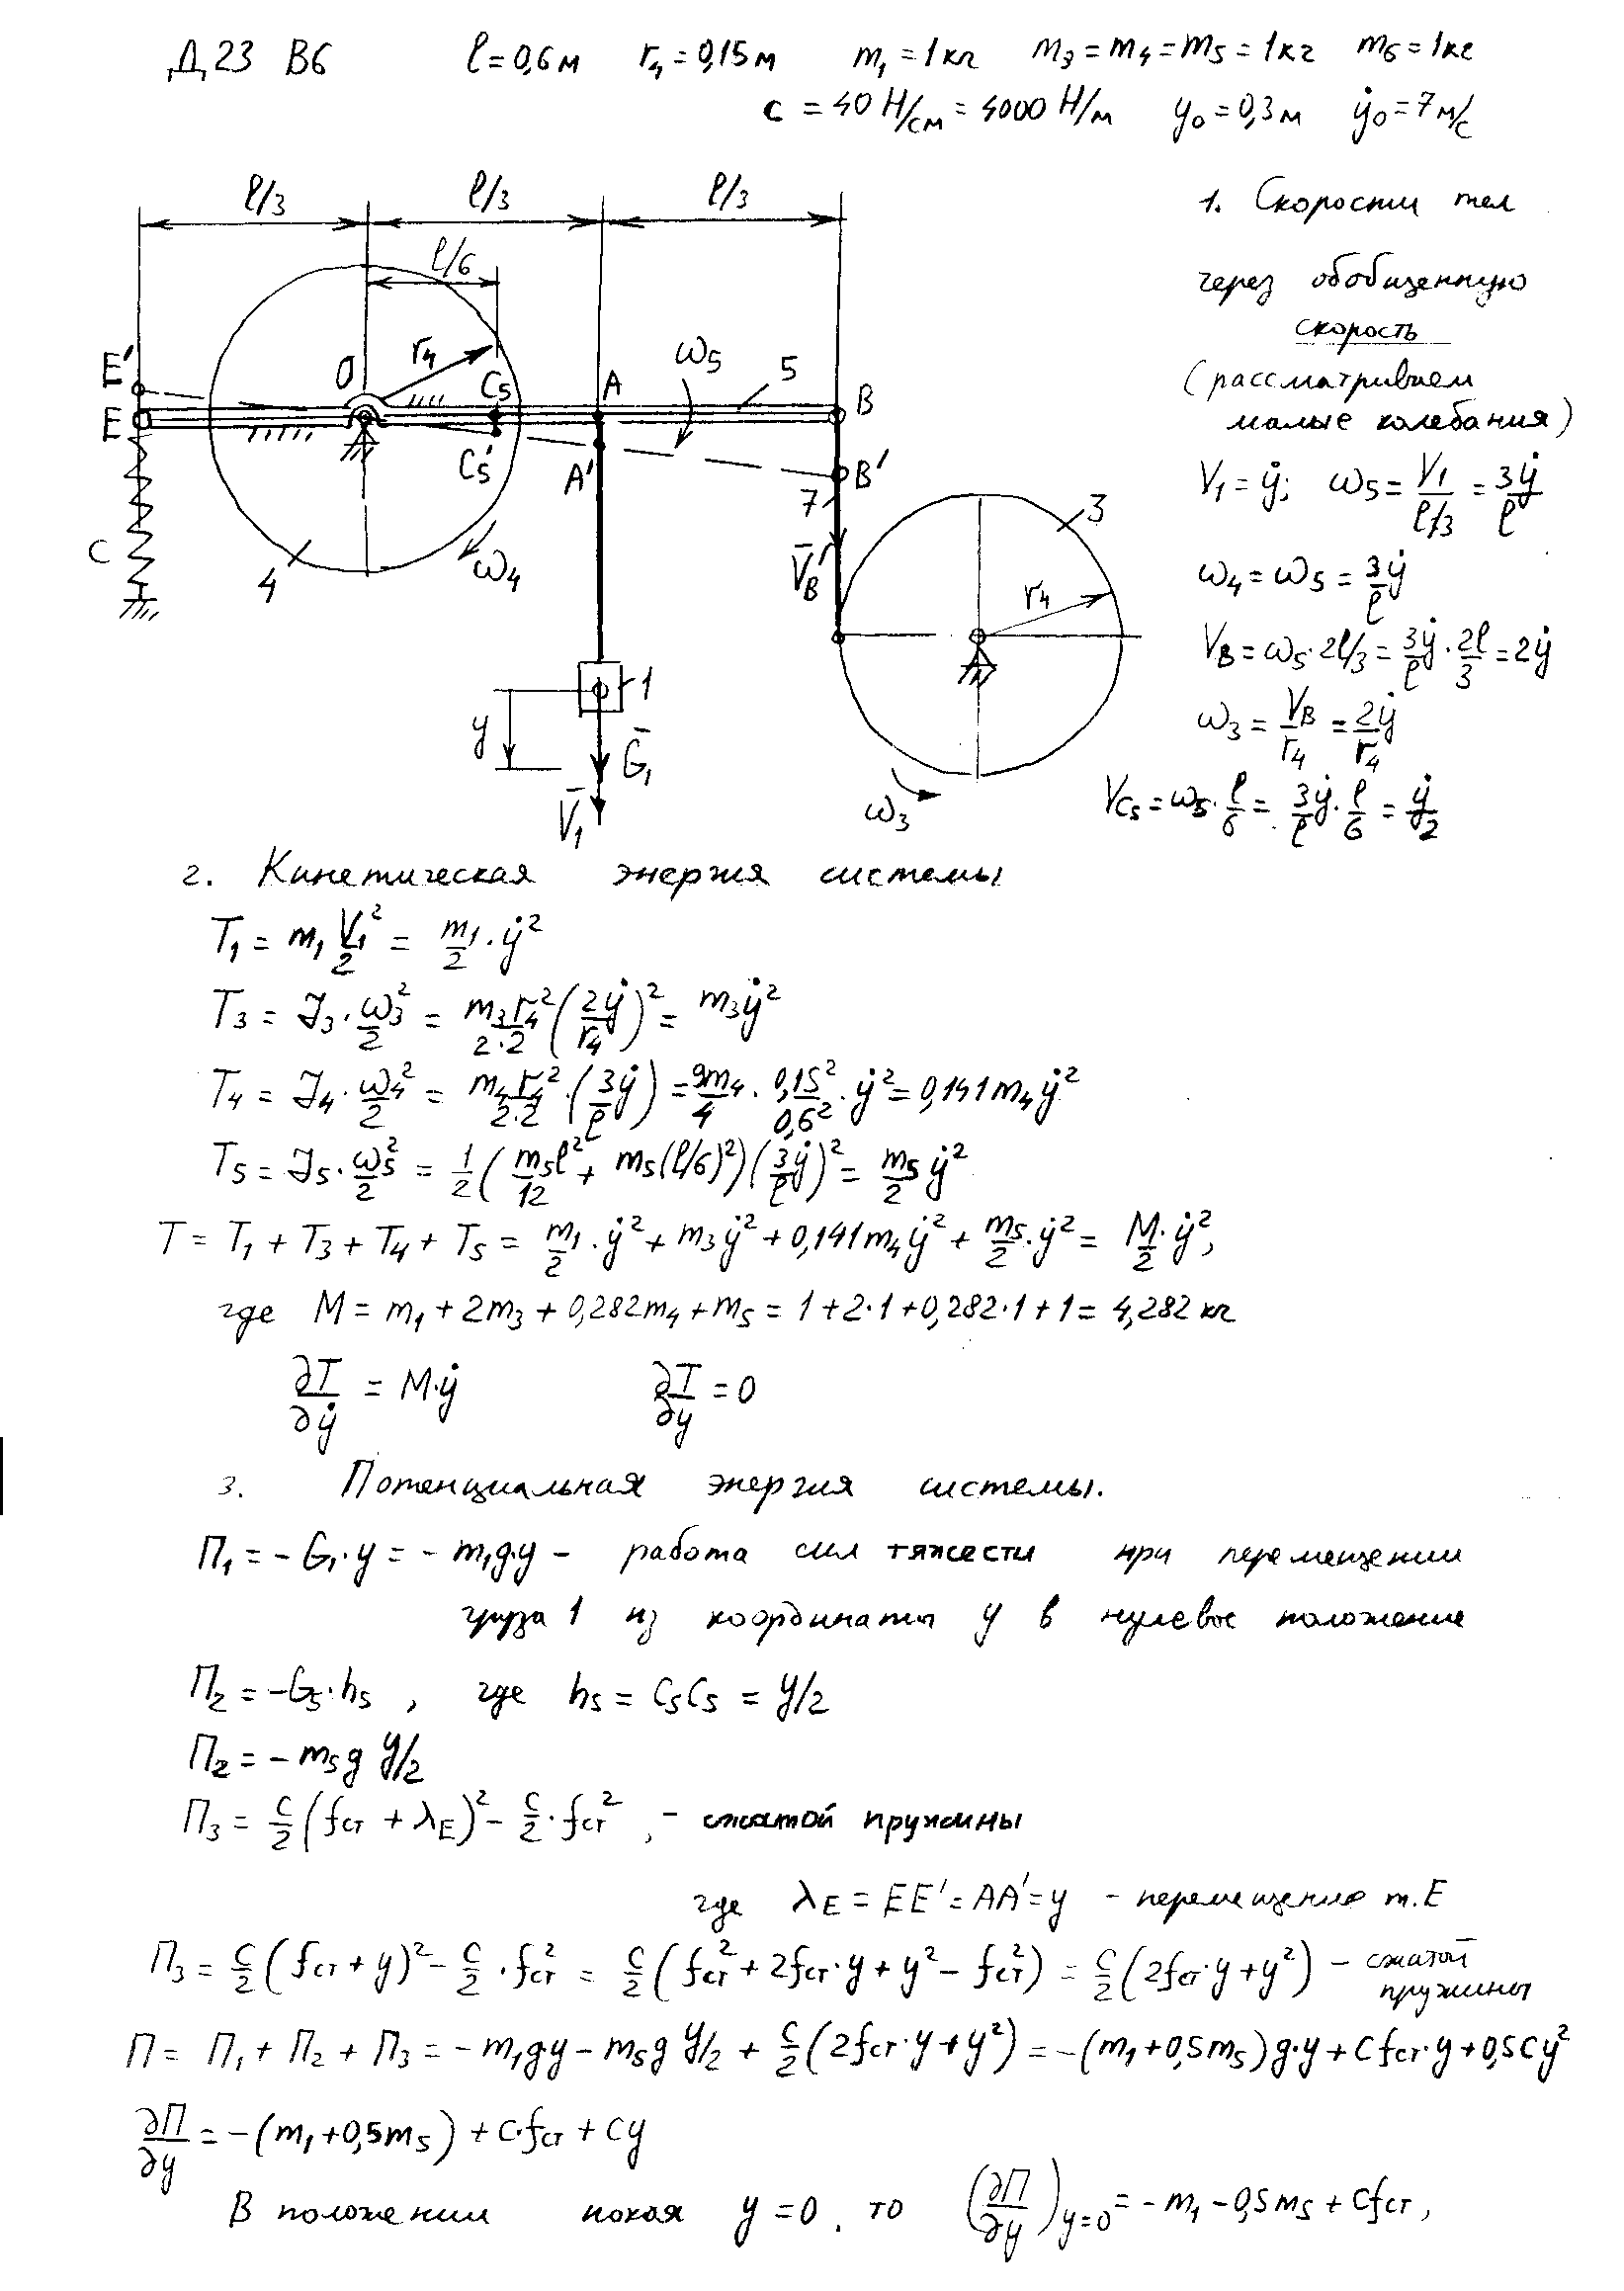 Д 23 В6 l = 0,6 м r₄ = 0,15 м m₁ = 1 кг m₃ = m₄ = m₅ = 1 кг m₆ = 1 кг
c = 40 Н/см = 4000 Н/м y₀ = 0,3 м ẏ₀ = 7 м/с
l/3 l/3 l/3
l/6
1. Скорости тел
через обобщенную
скорость
(рассматриваем
малые колебания)
E' O r₄ C₅ A ω₅ 5 B
E C₅' A' B'
7
c 4 ω₄ V̄_B' 3
r₄
1
y Ḡ₁
V̄₁ ω₃
V₁ = ẏ; ω₅ = V₁/(l/3) = 3ẏ/l
ω₄ = ω₅ = 3ẏ/l
V_B = ω₅·2l/3 = 3ẏ/l · 2l/3 = 2ẏ
ω₃ = V_B/r₄ = 2ẏ/r₄
V_C₅ = ω₅·l/6 = 3ẏ/l · l/6 = ẏ/2
2. Кинетическая энергия системы
T₁ = m₁ V₁²/2 = m₁/2 · ẏ²
T₃ = J₃·ω₃²/2 = m₃r₄²/(2·2) (2ẏ/r₄)² = m₃ẏ²
T₄ = J₄·ω₄²/2 = m₄r₄²/(2·2) · (3ẏ/l) = 9m₄/4 · 0,15²/0,6² · ẏ² = 0,141m₄ẏ²
T₅ = J₅·ω₅²/2 = 1/2 (m₅l²/12 + m₅(l/6)²)(3ẏ/l)² = m₅/2 ẏ²
T = T₁ + T₃ + T₄ + T₅ = m₁/2 · ẏ² + m₃ẏ² + 0,141m₄ẏ² + m₅/2 · ẏ² = M/2 · ẏ²,
где M = m₁ + 2m₃ + 0,282m₄ + m₅ = 1 + 2·1 + 0,282·1 + 1 = 4,282 кг
∂T/∂ẏ = M·ẏ ∂T/∂y = 0
3. Потенциальная энергия системы.
П₁ = - G₁·y = - m₁g·y - работа сил тяжести при перемещении
груза 1 из координаты y в нулевое положение
П₂ = -G₅·h₅ , где h₅ = C₅C₅ = y/2
П₂ = - m₅g y/2
П₃ = c/2 (fст + λ_E)² - c/2 · fст² , - сжатой пружины
где λ_E = EE' = AA' = y - перемещение т. E
П₃ = c/2 (fст + y)² - c/2 · fст² = c/2 (fст² + 2fст·y + y² - fст²) = c/2 (2fст·y + y²) - сжатой
пружины
П = П₁ + П₂ + П₃ = - m₁gy - m₅g y/2 + c/2 (2fст·y + y²) = -(m₁ + 0,5m₅)g·y + cfст·y + 0,5cy²
∂П/∂y = -(m₁ + 0,5m₅) + c·fст + cy
В положении покоя y = 0, то (∂П/∂y)y=0 = - m₁ - 0,5m₅ + cfст,